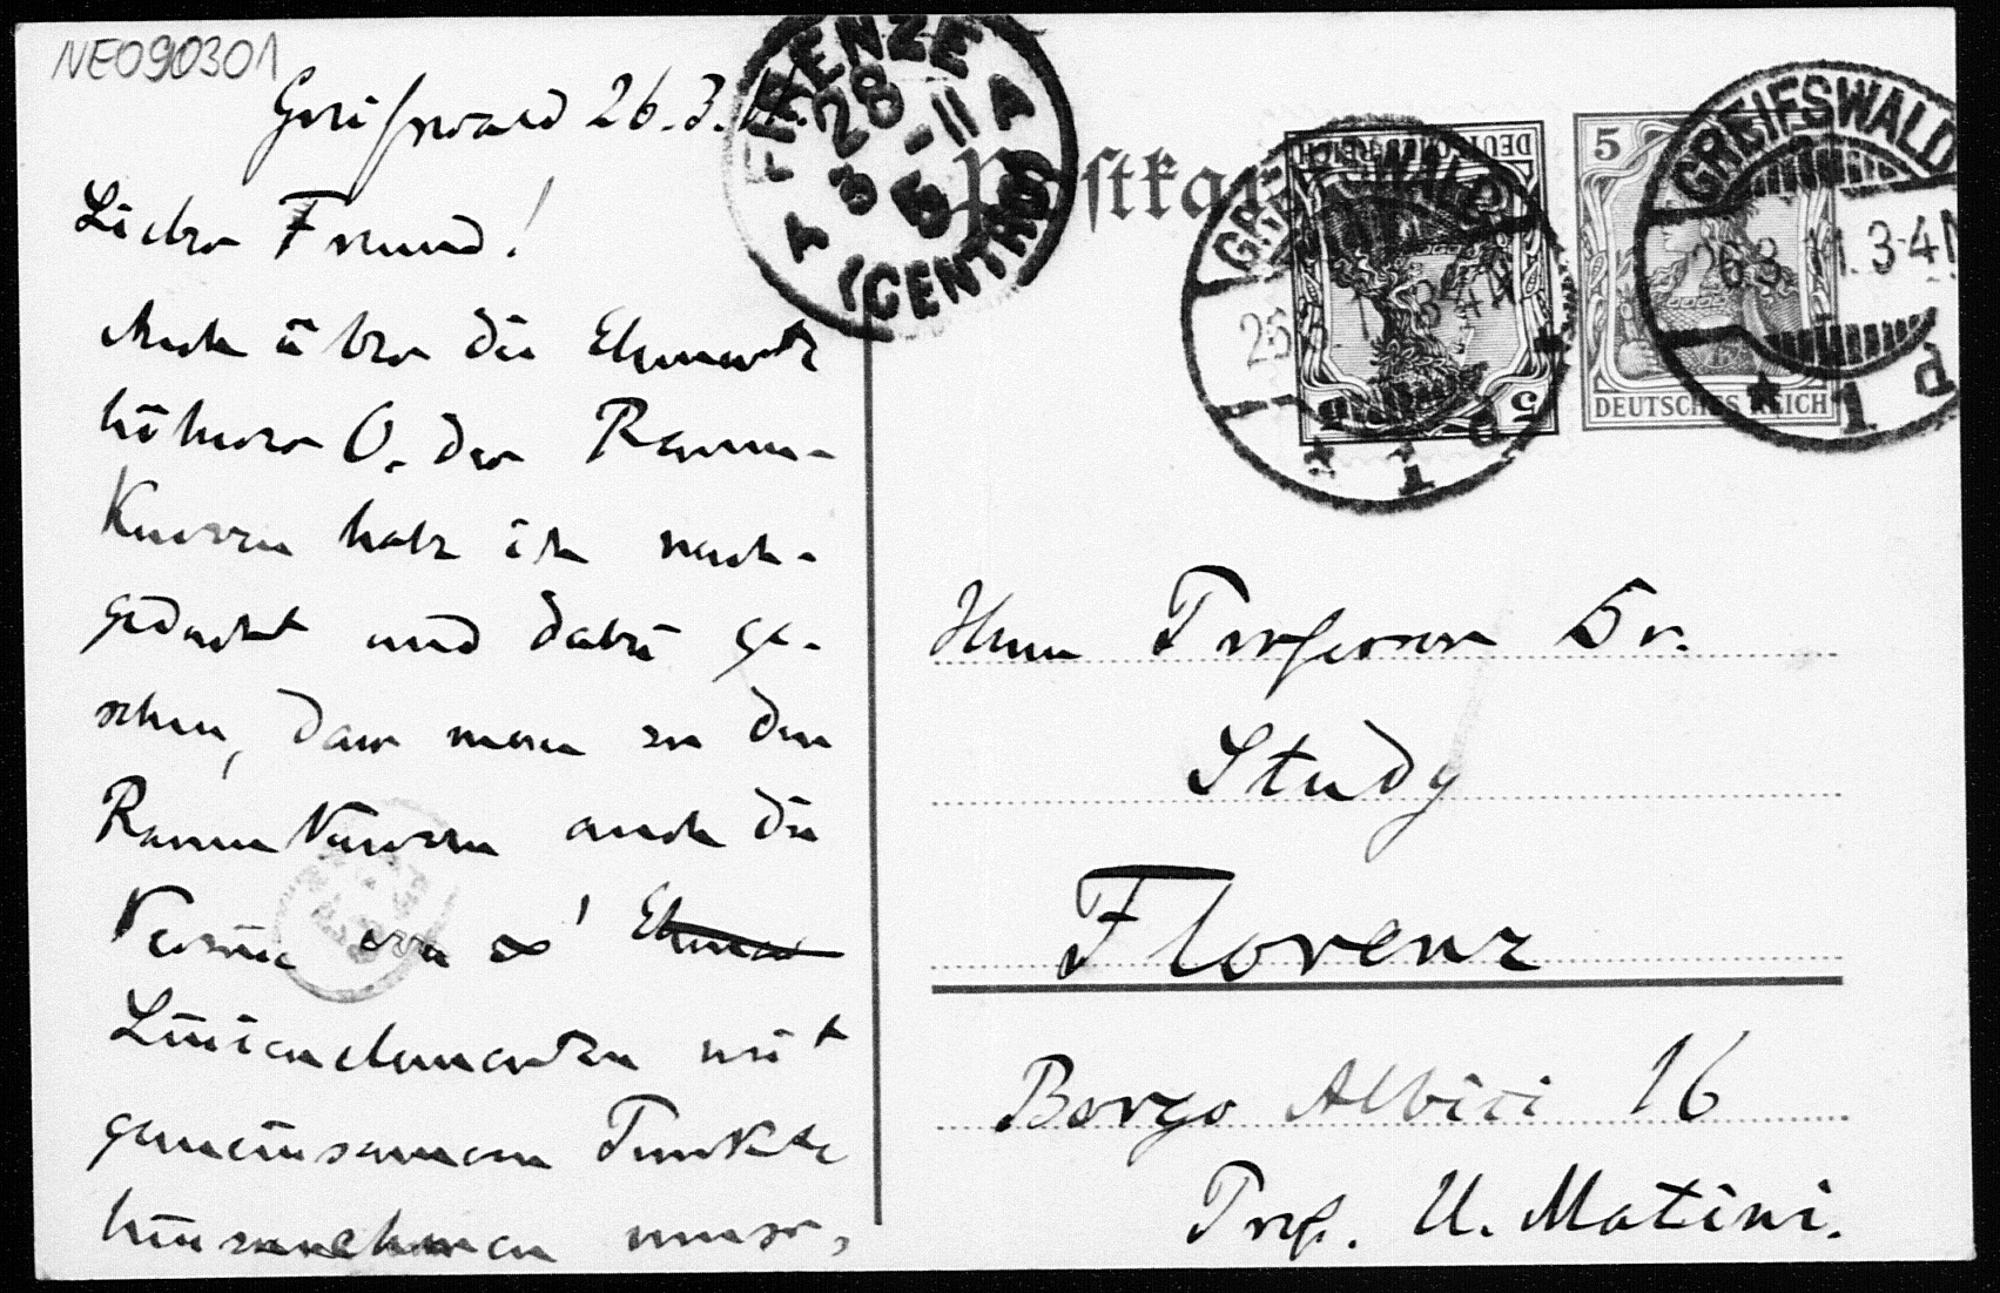 NE090301
Greifswald 26.3.11.
Lieber Freund!
Auch über die Elemente
höherer O. der Raum-
Kurven habe ich nach-
gedacht und dabei ge-
sehen, dass man zu den
Raum Kurven auch die
Vereine von ∞¹ Elemen
Linienelementen mit
gemeinsamem Punkte
hinzunehmen muss,
FIRENZE
28
3 - 11
5 A
(CENTRO)
Postkarte
DEUTSCHES REICH
5
GREIFSWALD
* 1 d
5
DEUTSCHES REICH
GREIFSWALD
26.3.11.3-4N
* 1 d
Herrn Professor Dr.
Study
Florenz
Borgo Albizi 16
Prof. U. Matini.